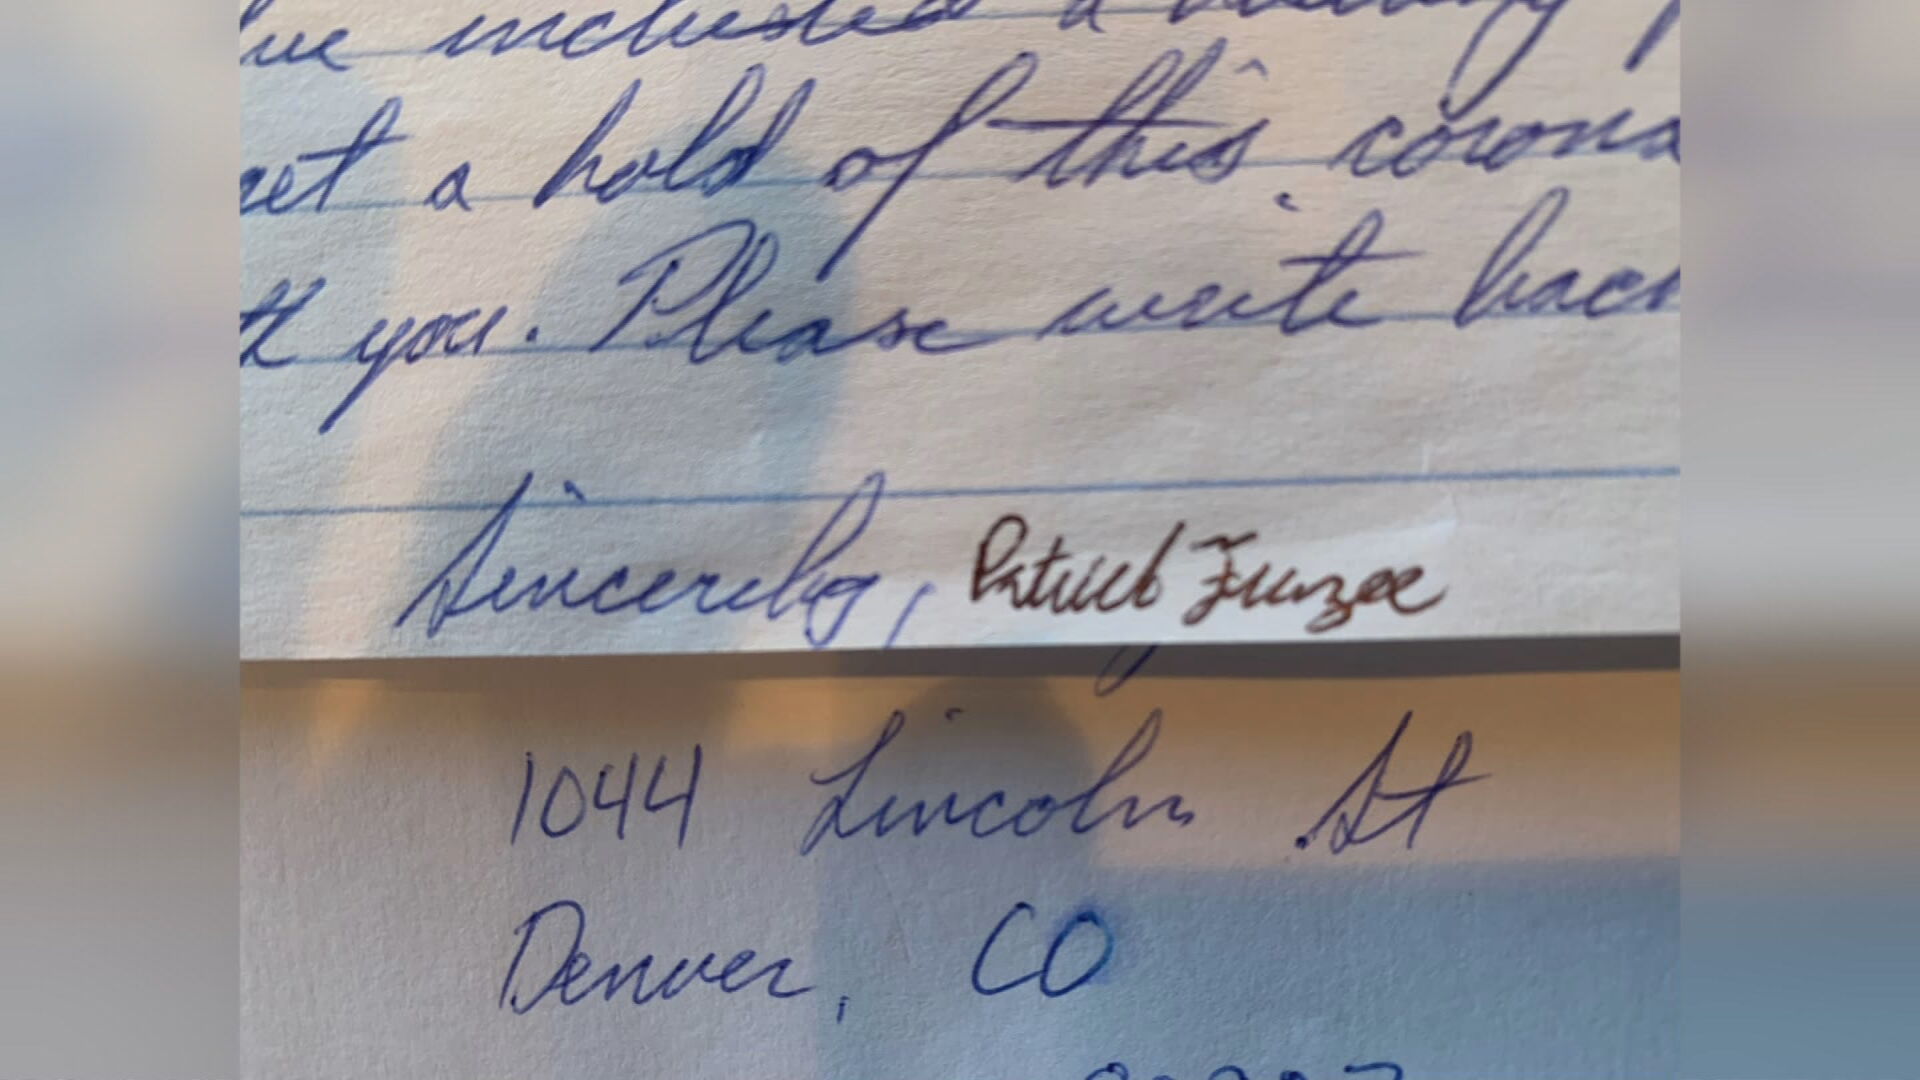 included a
get a hold of this corona
th you. Please write back
Sincerely, Patrick Frazee
1044 Lincoln St
Denver, CO